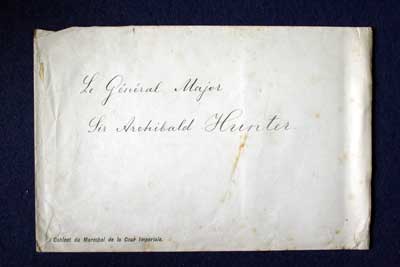 Le Général Major
Sir Archibald Hunter
Cabinet du Maréchal de la Cour Impériale.